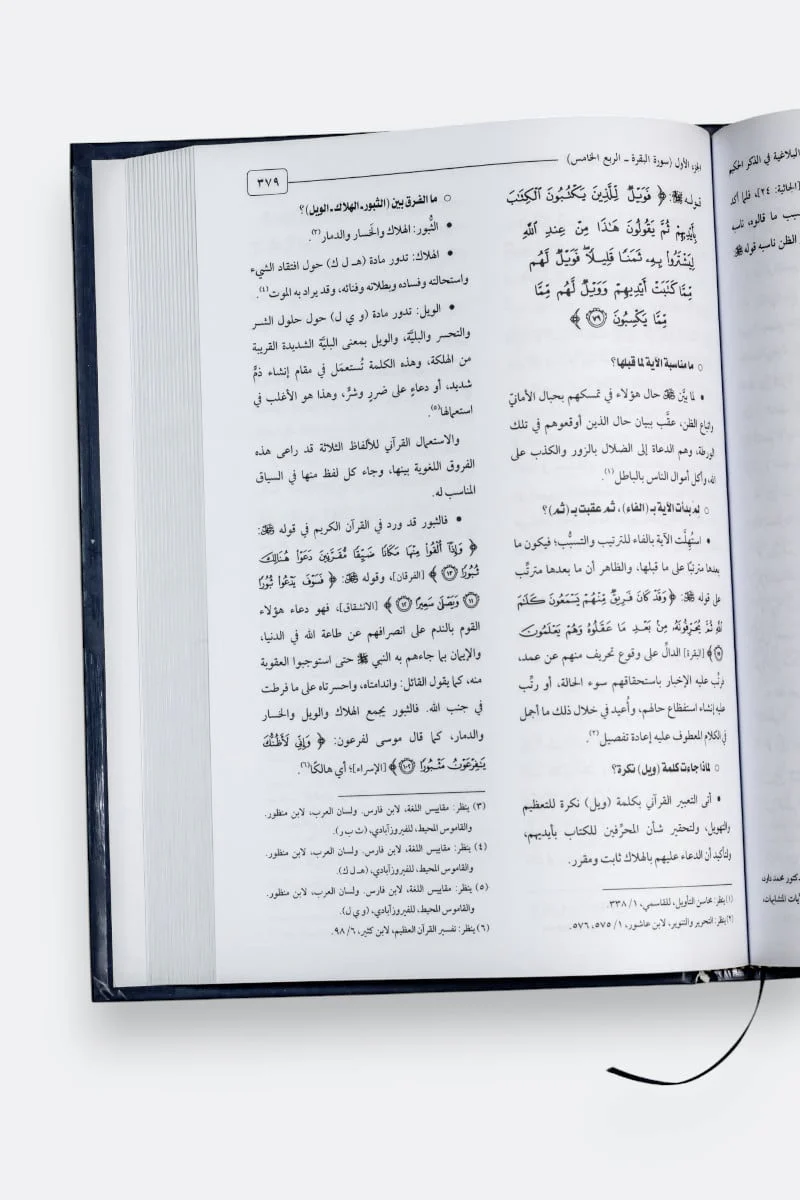 الجزء الأول (سورة البقرة - الربع الخامس)
٣٧٩
قوله ﷻ: ﴿ فَوَيْلٌ لِّلَّذِينَ يَكْتُبُونَ ٱلْكِتَٰبَ
بِأَيْدِيهِمْ ثُمَّ يَقُولُونَ هَٰذَا مِنْ عِندِ ٱللَّهِ
لِيَشْتَرُوا۟ بِهِۦ ثَمَنًا قَلِيلًا ۖ فَوَيْلٌ لَّهُم
مِّمَّا كَتَبَتْ أَيْدِيهِمْ وَوَيْلٌ لَّهُم مِّمَّا
مِّمَّا يَكْسِبُونَ ٧٩ ﴾
○ ما مناسبة الآية لما قبلها؟
• لما بيَّن ﷻ حال هؤلاء في تمسكهم بحبال الأمانيّ
واتباع الظن، عقَّب ببيان حال الذين أوقعوهم في تلك
الورطة، وهم الدعاة إلى الضلال بالزور والكذب على
الله، وأكل أموال الناس بالباطل(١).
○ لم بدأت الآية بـ(الفاء)، ثم عقبت بـ(ثم)؟
• استُهِلَّت الآية بالفاء للترتيب والتسبُّب؛ فيكون ما
بعدها مترتبًا على ما قبلها، والظاهر أن ما بعدها مترتِّب
على قوله ﷻ: ﴿ وَقَدْ كَانَ فَرِيقٌ مِّنْهُمْ يَسْمَعُونَ كَلَٰمَ
ٱللَّهِ ثُمَّ يُحَرِّفُونَهُۥ مِنۢ بَعْدِ مَا عَقَلُوهُ وَهُمْ يَعْلَمُونَ
﴾ [البقرة] الدالِّ على وقوع تحريف منهم عن عمد،
فرتِّب عليه الإخبار باستحقاقهم سوء الحالة، أو رتِّب
عليه إنشاء استفظاع حالهم، وأُعيد في خلال ذلك ما أجمل
في الكلام المعطوف عليه إعادة تفصيل(٢).
○ لماذا جاءت كلمة (ويل) نكرة؟
• أتى التعبير القرآني بكلمة (ويل) نكرة للتعظيم
والتهويل، ولتحقير شأن المحرِّفين للكتاب بأيديهم،
ولتأكيد أن الدعاء عليهم بالهلاك ثابت ومقرر.
(١) ينظر: محاسن التأويل، للقاسمي، ١/ ٣٣٨.
(٢) ينظر: التحرير والتنوير، لابن عاشور، ١/ ٥٧٥، ٥٧٦.
○ ما الفرق بين (الثبور-الهلاك-الويل)؟
• الثُّبور: الهلاك والخَسار والدمار(٣).
• الهلاك: تدور مادة (هـ ل ك) حول افتقاد الشيء
واستحالته وفساده وبطلانه وفنائه، وقد يراد به الموت(٤).
• الويل: تدور مادة (و ي ل) حول حلول الشر
والتحسر والبليَّة، والويل بمعنى البليَّة الشديدة القريبة
من الهلكة، وهذه الكلمة تُستعمَل في مقام إنشاء ذمٍّ
شديد، أو دعاءٍ على ضررٍ وشرٍّ، وهذا هو الأغلب في
استعمالها(٥).
والاستعمال القرآني للألفاظ الثلاثة قد راعى هذه
الفروق اللغوية بينها، وجاء كل لفظ منها في السياق
المناسب له.
• فالثبور قد ورد في القرآن الكريم في قوله ﷻ:
﴿ وَإِذَآ أُلْقُوا۟ مِنْهَا مَكَانًا ضَيِّقًا مُّقَرَّنِينَ دَعَوْا۟ هُنَالِكَ
ثُبُورًا ١٣ ﴾ [الفرقان]، وقوله ﷻ: ﴿ فَسَوْفَ يَدْعُوا۟ ثُبُورًا
١١ وَيَصْلَىٰ سَعِيرًا ١٢ ﴾ [الانشقاق]، فهو دعاء هؤلاء
القوم بالندم على انصرافهم عن طاعة الله في الدنيا،
والإيمان بما جاءهم به النبي ﷺ حتى استوجبوا العقوبة
منه، كما يقول القائل: واندامتاه، واحسرتاه على ما فرطت
في جنب الله. فالثبور يجمع الهلاك والويل والخسار
والدمار، كما قال موسى لفرعون: ﴿ وَإِنِّى لَأَظُنُّكَ
يَٰفِرْعَوْنُ مَثْبُورًا ١٠٢ ﴾ [الإسراء]؛ أي هالكًا(٦).
(٣) ينظر: مقاييس اللغة، لابن فارس. ولسان العرب، لابن منظور.
والقاموس المحيط، للفيروزآبادي، (ث ب ر).
(٤) ينظر: مقاييس اللغة، لابن فارس. ولسان العرب، لابن منظور.
والقاموس المحيط، للفيروزآبادي، (هـ ل ك).
(٥) ينظر: مقاييس اللغة، لابن فارس. ولسان العرب، لابن منظور.
والقاموس المحيط، للفيروزآبادي، (و ي ل).
(٦) ينظر: تفسير القرآن العظيم، لابن كثير، ٦/ ٩٨.
البلاغية في الذكر الحكيم
[الجاثية: ٢٤]، فلما أكد
سبب ما قالوه، ناسب
الظن ناسبه قوله ﷻ